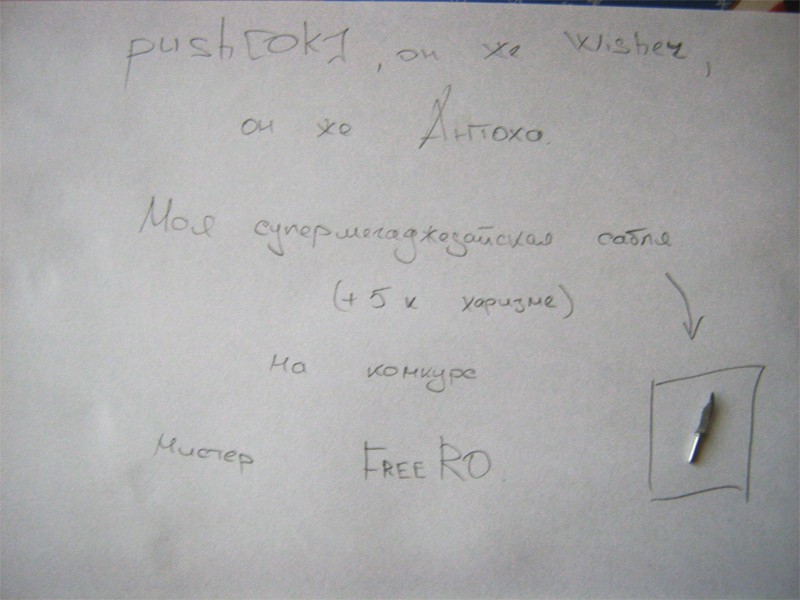 push[Ok], он же Wisher,
он же Антоха.
Моя супермегаджедайская сабля
(+5 к харизме)
на конкурс
Мистер FREERO